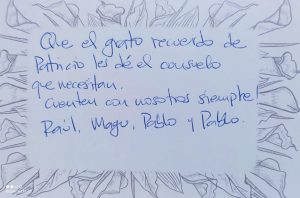 Que el grato recuerdo de
Patricio les dé el consuelo
que necesitan.
Cuenten con nosotros siempre!
Raúl, Magu, Pablo y Pablo.